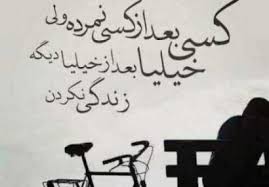 کسی بعد از کسی نمرده ولی
خیلیا بعد از خیلیا دیگه
زندگی نکردن